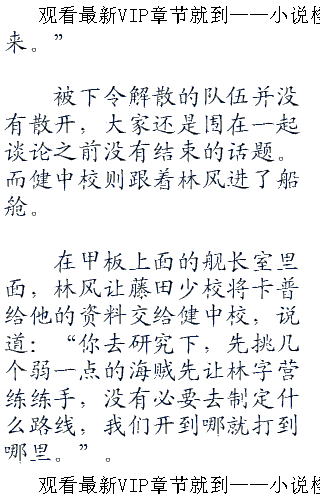 观看最新VIP章节就到——小说
来。”
被下令解散的队伍并没
有散开，大家还是围在一起
谈论之前没有结束的话题。
而健中校则跟着林风进了船
舱。
在甲板上面的舰长室里
面，林风让藤田少校将卡普
给他的资料交给健中校，说
道：“你去研究下，先挑几
个弱一点的海贼先让林字营
练练手，没有必要去制定什
么路线，我们开到哪就打到
哪里。”。
观看最新VIP章节就到——小说